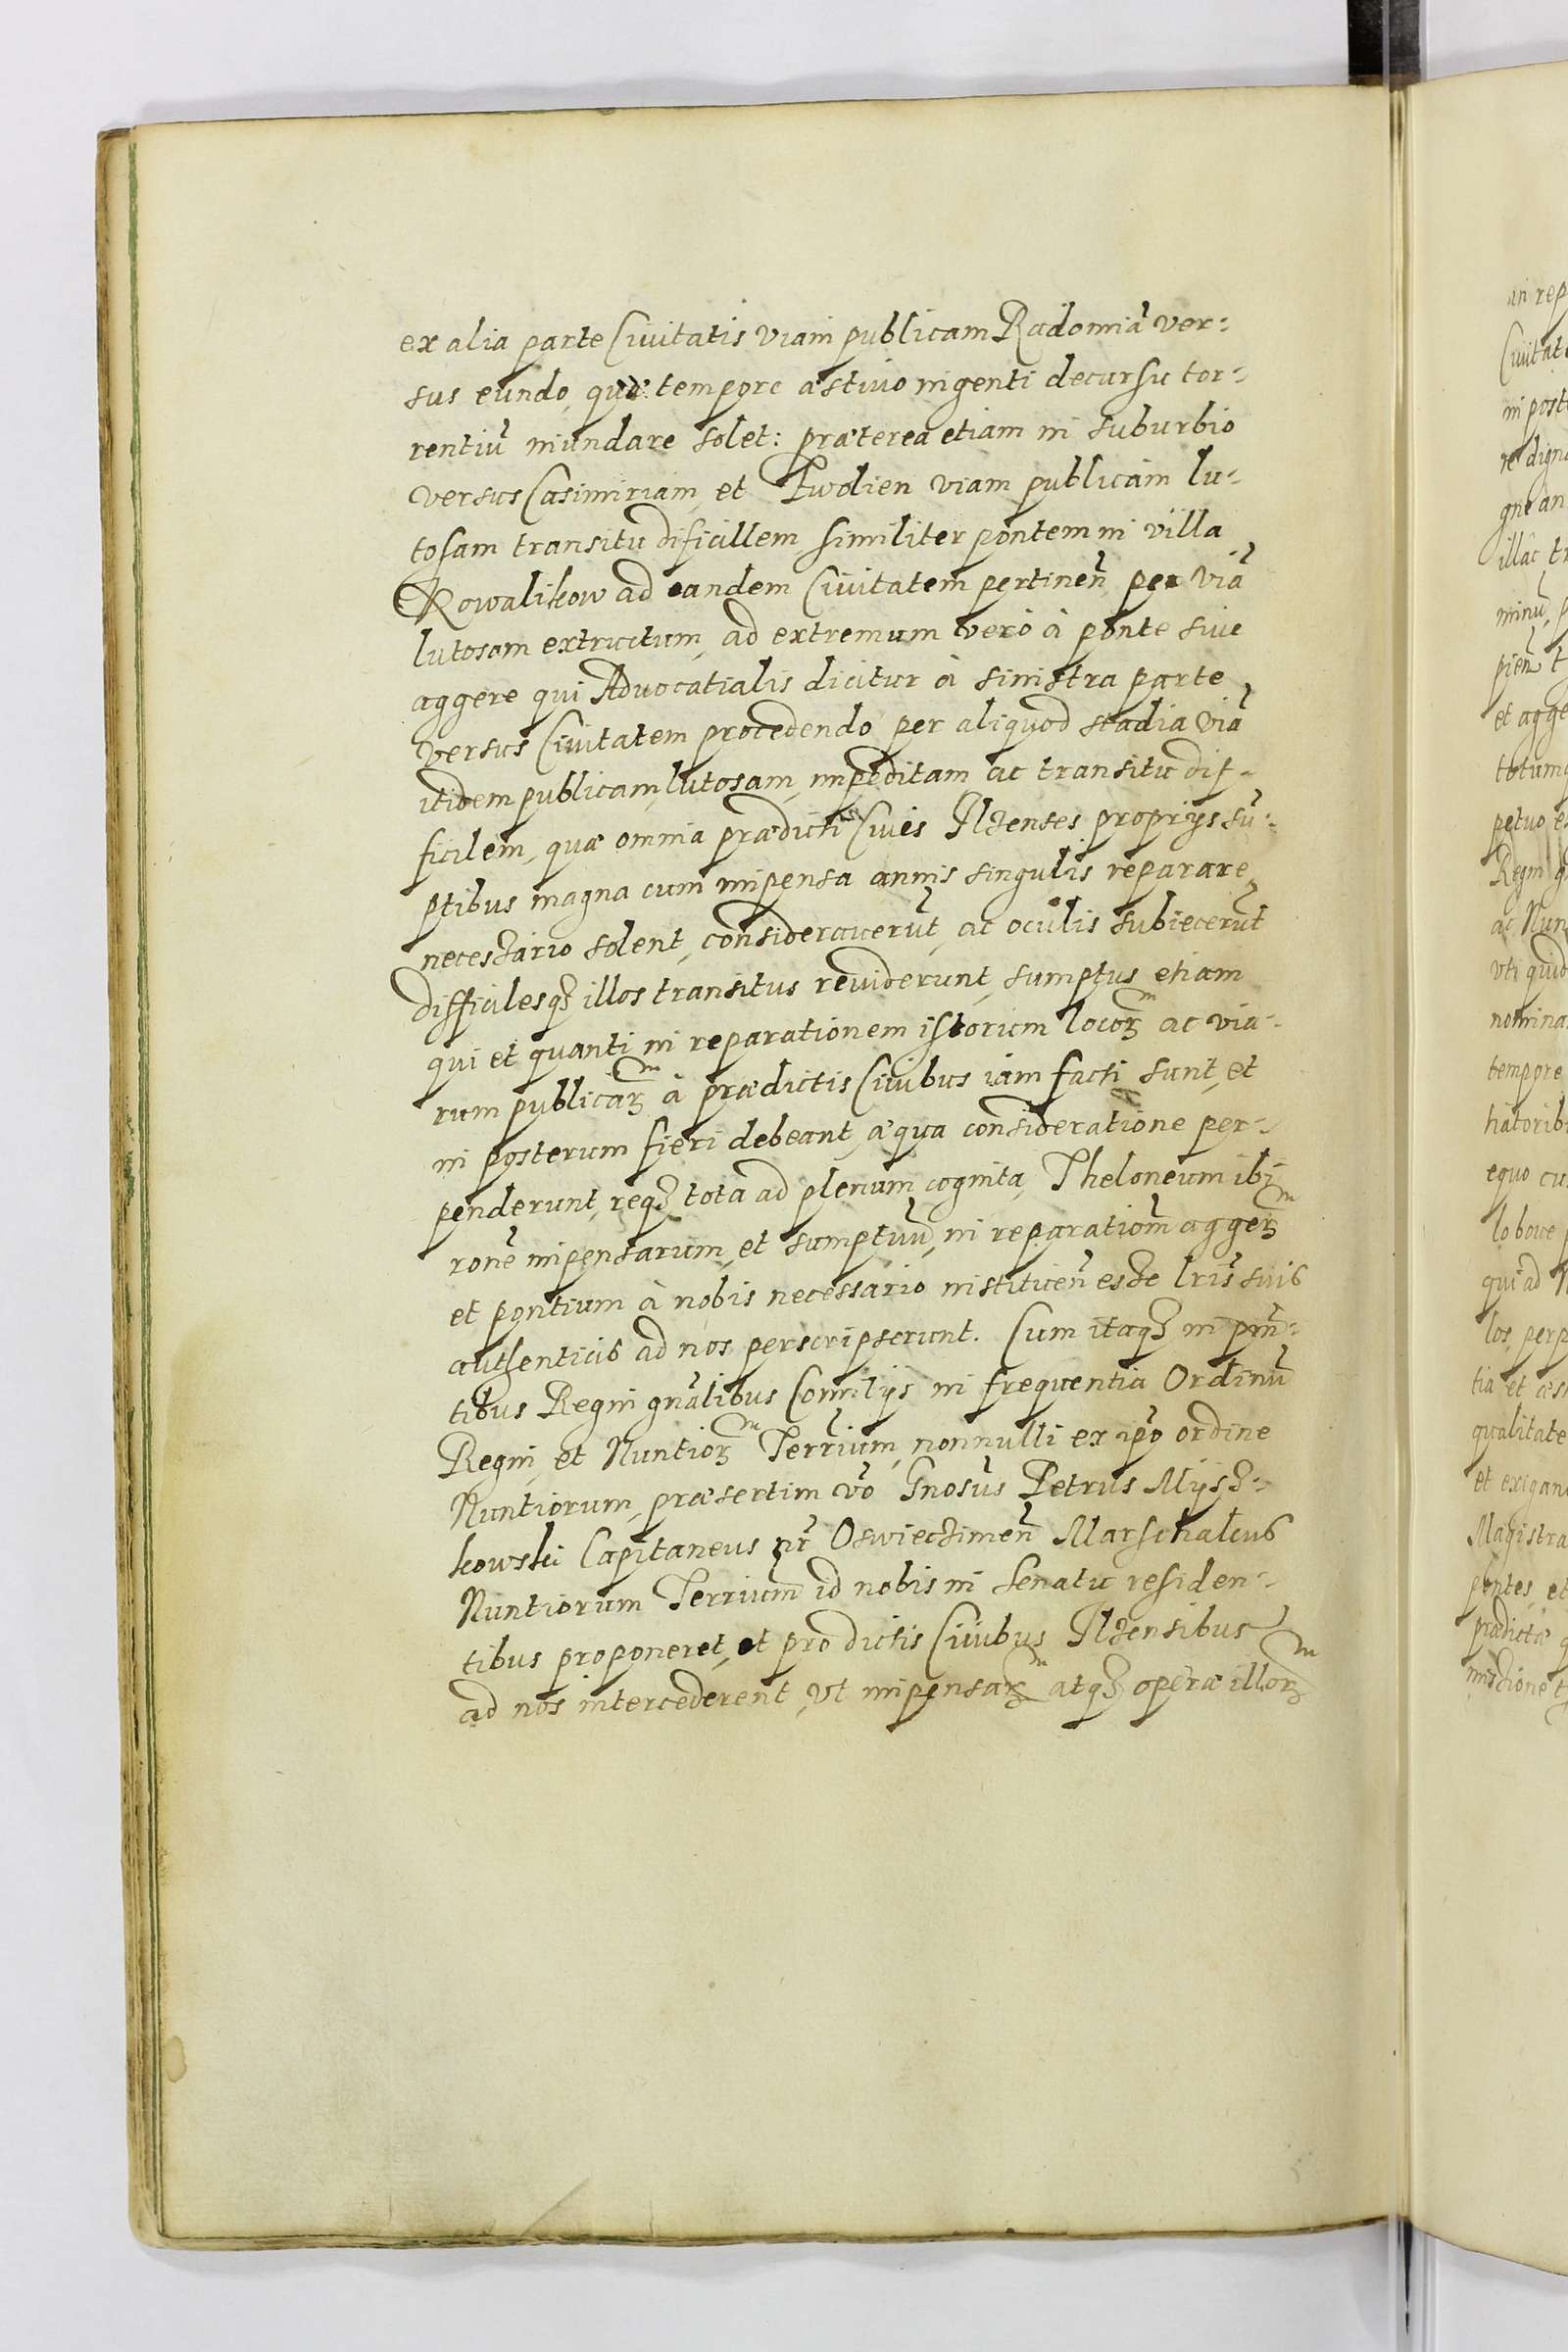 ex alia parte Ciuitatis viam publicam Radomiã ver-
sus eundo, quæ tempore æstiuo ingenti decursu tor-
rentiũ inundare solet: præterea etiam in suburbio
versus Casimiriam, et viam publicam lu-
tosam transitu dificillem similiter pontem in villa
Kowalikow ad eandem Ciuitatem pertineñ per viã
lutosam extructum, ad extremum verò à ponte siue
aggere qui Aduocatialis dicitur à sinistra parte
versus Ciuitatem procedendo per aliquod stadia viã
itidem publicam, lutosam, impeditam ac transitu dif-
ficilem, quæ omnia prædicti Ciues Ilzenses proprijs sũ-
ptibus magna cum impensa annis singulis reparare
necessario solent, considerauerũt, ac oculis subiecerũt
difficilesqꝫ illos transitus reuiderunt, sumptus etiam
qui et quanti in reparationem istorum locoꝝ ac via-
rum publicaꝝ à prædictis Ciuibus iam facti sunt, et
in posterum fieri debeant, æqua consideratione per-
penderunt, reqꝫ tota ad plenum cognita, Theloneum ibi
rone impensarum, et sumptuũ, in reparatiom̃ aggeꝝ
et pontium à nobis necessario instituen̄ esse lris̃ suis
authenticis ad nos perscripserunt. Cum itaqꝫ in pñ-
tibus Regni gñalibus Comitijs in frequentia Ordinũ
Regni, et Nuntioꝝ Terrium, nonnulli ex ipõ ordine
Nuntiorum, præsertim võ Gnosũs Petrus Mysz-
kowski Capitaneus nr̃ Oswieczimeñ Marschalcus
Nuntiorum Terrium id nobis in Senatu residen-
tibus proponeret, et pro dictis Ciuibus Ilzensibus
ad nos intercederent, vt impensaꝝ atqꝫ operæ illoꝝ